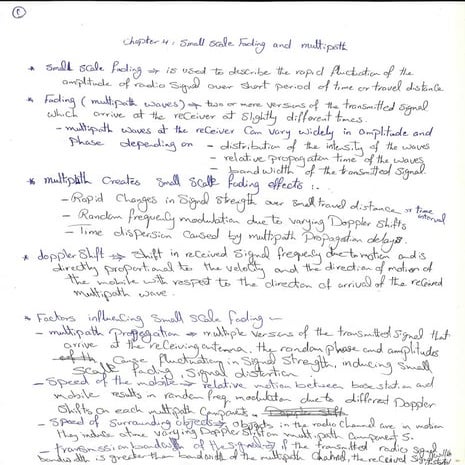 1
Chapter 4: Small Scale Fading and multipath
* Small Scale Fading → is used to describe the rapid fluctuation of the
amplitude of radio signal over short period of time or travel distance
* Fading (multipath waves) → two or more versions of the transmitted signal
which arrive at the receiver at slightly different times.
- multipath waves at the receiver Can vary widely in amplitude and
phase depending on - distribution of the intensity of the waves
- relative propagation time of the waves
- bandwidth of the transmitted signal
* multipath Creates Small Scale fading effects :.
- Rapid Changes in Signal Strength over small travel distance or time interval
- Random frequency modulation due to varying Doppler Shifts
- Time dispersion Caused by multipath Propagation delays.
* doppler Shift → Shift in received Signal frequency due to motion and is
directly proportional to the velocity and the direction of motion of
the mobile with respect to the direction of arrival of the received
multipath wave.
* Factors influencing Small Scale fading -
- multipath propagation → multiple versions of the transmitted signal that
arrive at the receiving antenna, the random phase and amplitudes
Cause fluctuation in Signal Strength, inducing Small
Scale fading, Signal distortion
- Speed of the mobile → relative motion between base station and
mobile results in random freq. modulation due to different Doppler
Shifts on each multipath Components. Doppler Shift
- Speed of Surrounding objects → objects in the radio Channel are in motion
they induce time varying Doppler Shift on multipath components.
- transmission bandwidth of the Signal → if the transmitted radio signal
bandwidth is greater than bandwidth of the multipath Channel, the received Signal